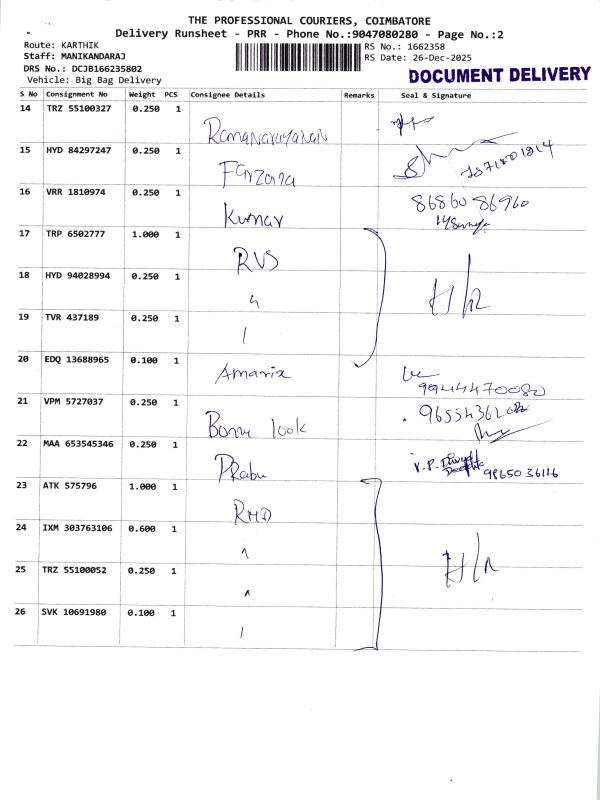 THE PROFESSIONAL COURIERS, COIMBATORE
Delivery Runsheet - PRR - Phone No.:9047080280 - Page No.:2
Route: KARTHIK
RS No.: 1662358
Staff: MANIKANDARAJ
RS Date: 26-Dec-2025
DRS No.: DCJB166235802
DOCUMENT DELIVERY
Vehicle: Big Bag Delivery
S No Consignment No Weight PCS Consignee Details Remarks Seal & Signature
14 TRZ 55100327 0.250 1 Ramanarayanan
15 HYD 84297247 0.250 1 Farzana
16 VRR 1810974 0.250 1 Kumar 86860 86960
17 TRP 6502777 1.000 1 RVS
18 HYD 94028994 0.250 1 " H/R
19 TVR 437189 0.250 1
20 EDQ 13688965 0.100 1 Amarix 9944470082
21 VPM 5727037 0.250 1 look
22 MAA 653545346 0.250 1 Prabu V.P. 98650 36116
23 ATK 575796 1.000 1 RMD
24 IXM 303763106 0.600 1 "
25 TRZ 55100052 0.250 1 " H/R
26 SVK 10691980 0.100 1